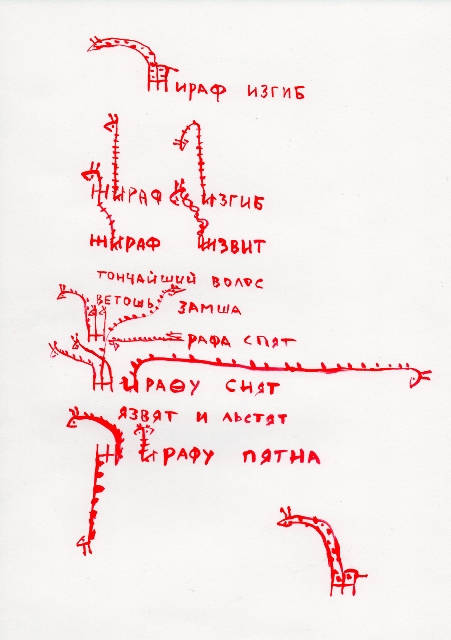 ЖИРАФ ИЗГИБ
ЖИРАФ ИЗГИБ
ЖИРАФ ИЗВИТ
ТОНЧАЙШИЙ ВОЛОС
ВЕТОШЬ ЗАМША
ЖИРАФА СПЯТ
ЖИРАФУ СНЯТ
ЯЗВЯТ И ЛЬСТЯТ
ЖИРАФУ ПЯТНА